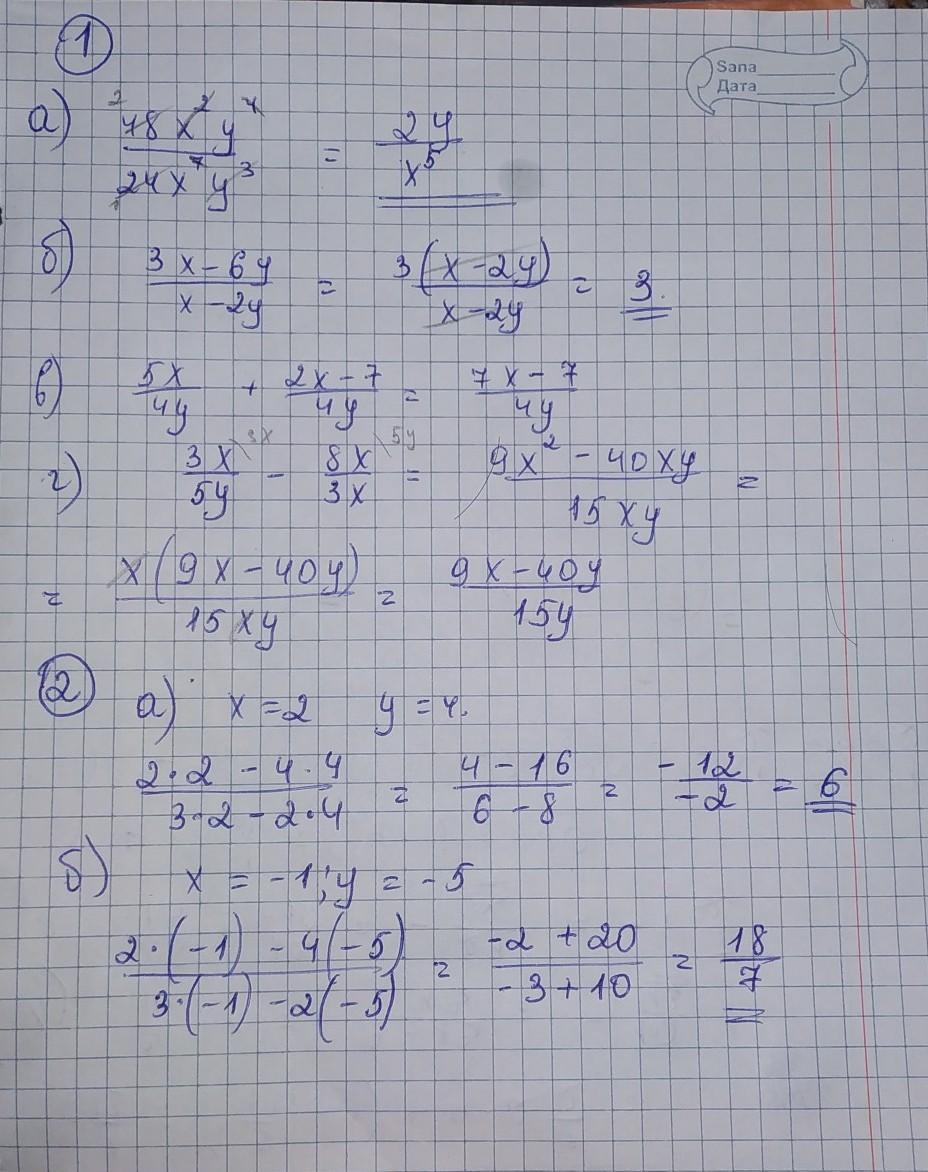 Sana
Дата
1
а) 48x²y⁴/24x⁷y³ = 2y/x⁵
б) 3x-6y/x-2y = 3(x-2y)/x-2y = 3.
в) 5x/4y + 2x-7/4y = 7x-7/4y
г) 3x/5y \3x - 8x/3x \5y = 9x²-40xy/15xy =
= x(9x-40y)/15xy = 9x-40y/15y
2 а) x=2 y=4.
2·2-4·4/3·2-2·4 = 4-16/6-8 = -12/-2 = 6
б) x = -1; y = -5
2·(-1)-4(-5)/3·(-1)-2(-5) = -2+20/-3+10 = 18/7